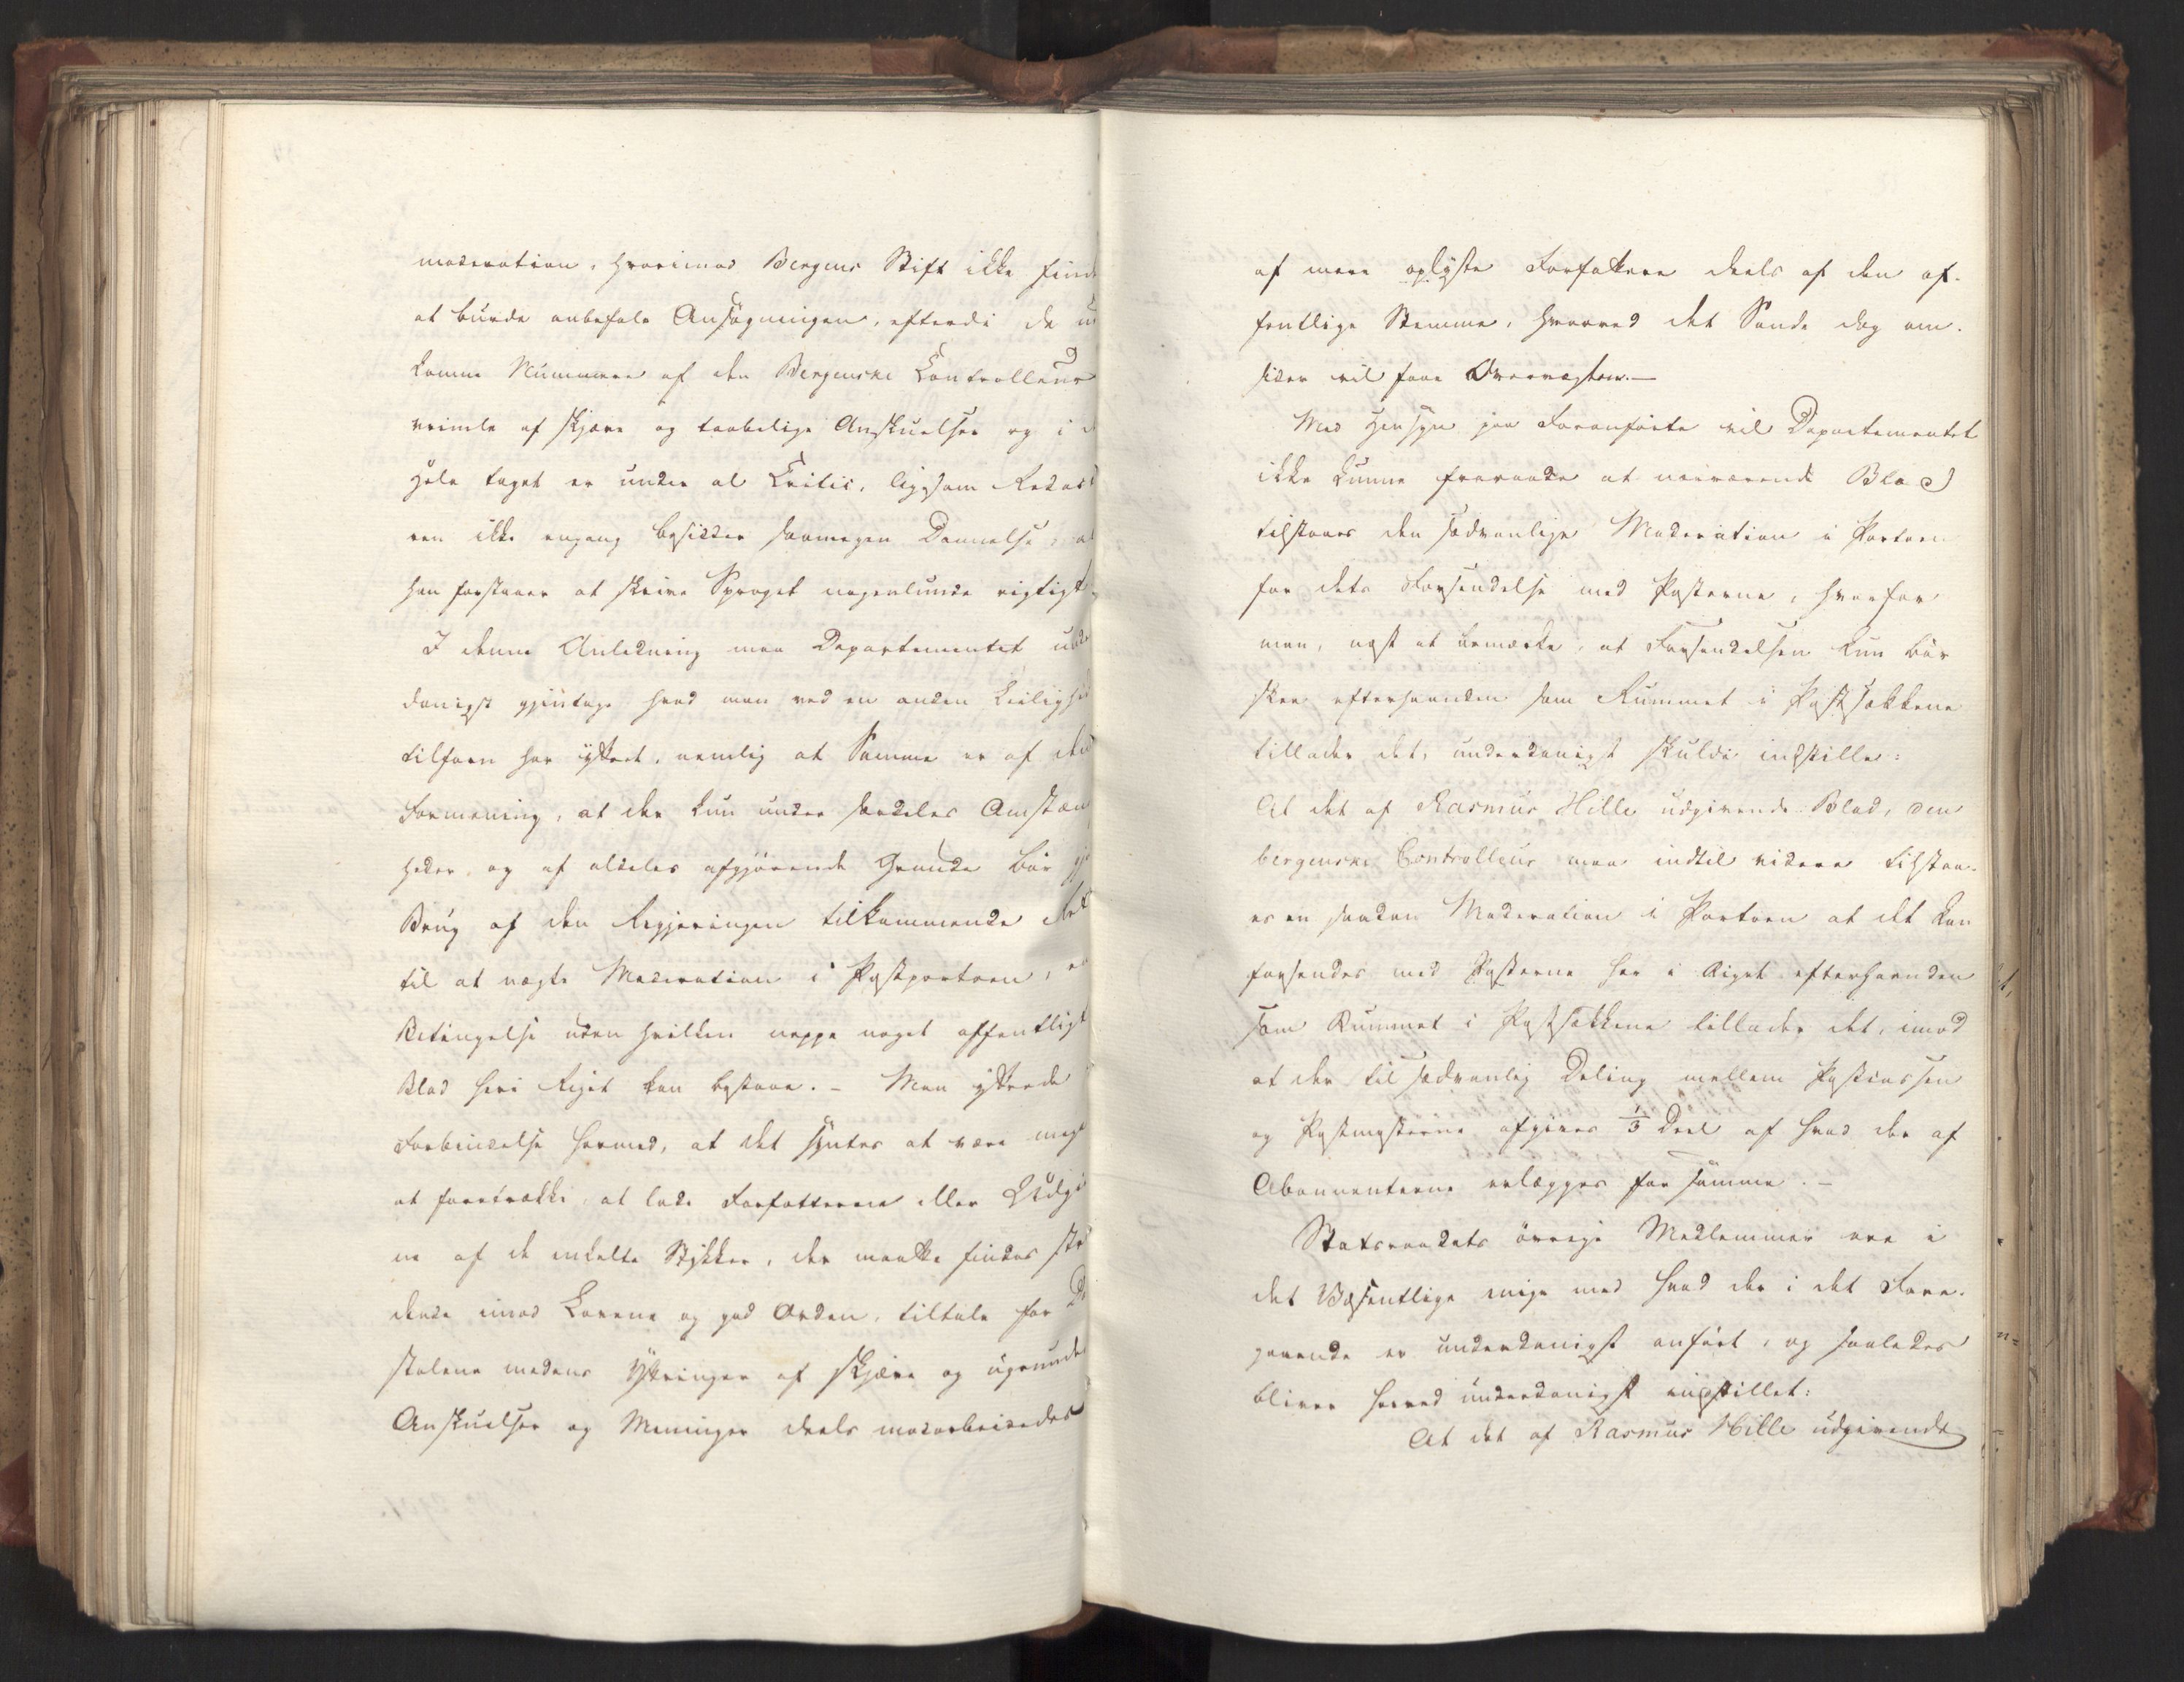 moderation, hvorimod Bergens Stift ikke find
at burde anbefale Ansøgningen, efterdi de u
komne Nummere af den Bergenske Controlleur
vrimle af skjæve og taabelige Anskuelser og i d
Hele taget er under al Critic, ligesom Redact
ren ikke engang besidder saamegen Dannelse at
han forstaaer at skrive Sproget nogenlunde rigtigt.
I denne Anledning maa Departementet und
danigst gjentage hvad man ved en anden Leilighed
tilforn har yttret, nemlig at Samme er af den
Formening, at der kun under særdeles Omstæn
heder, og af aldeles afgjørende Grunde bør gj
Brug af den Regjeringen tilkommende Ret
til at nægte Moderation i Postportoen, en
Betingelse uden hvilken neppe noget offentligt
Blad heri Riget kan bestaae. - Man yttrede
Forbindelse hermed, at det syntes at være meg
at foretrække, at lade Forfatterne eller Udgi
ne af de enkelte Stykker, der maatte findes stri
dende imod Lovene og god Orden, tiltale for Do
stolene medens Yttringer af skjæve og ugrunde
Anskuelser og Meninger deels modarbeidedes
af mere oplyste Forfattere deels af den of-
fentlige Stemme, hvorved det Sande dog om-
sider vil faae Overvægten. -
Med Hensyn paa Foranførte vil Departementet
ikke kunne fraraade at nærværende Blad
tilstaaes den sædvanlige Moderation i Portoen
for dets Forsendelse med Posterne, hvorfor
man, næst at bemærke, at Forsendelsen kun bør
skee efterhaanden som Rummet i Postsækkene
tillader det, underdanigst skulde indstille:
At det af Rasmus Hille udgivende Blad, den
bergenske Controlleur maa indtil videre tilstaa-
es en saadan Moderation i Portoen at det kan
forsendes med Posterne her i Riget efterhaanden
som Rummet i Postsækkene tillader det, imod
at der til sædvanlig Deling mellem Postcassen
og Postmesterne afgives 1/3 Deel af hvad der af
Abonnenterne erlægges for samme. -
Statsraadets øvrige Medlemmer ere i
det Væsentlige enige med hvad der i det Fore-
gaaende er underdanigst anført, og saaledes
bliver herved underdanigst indstillet:
At det af Rasmus Hille udgivende